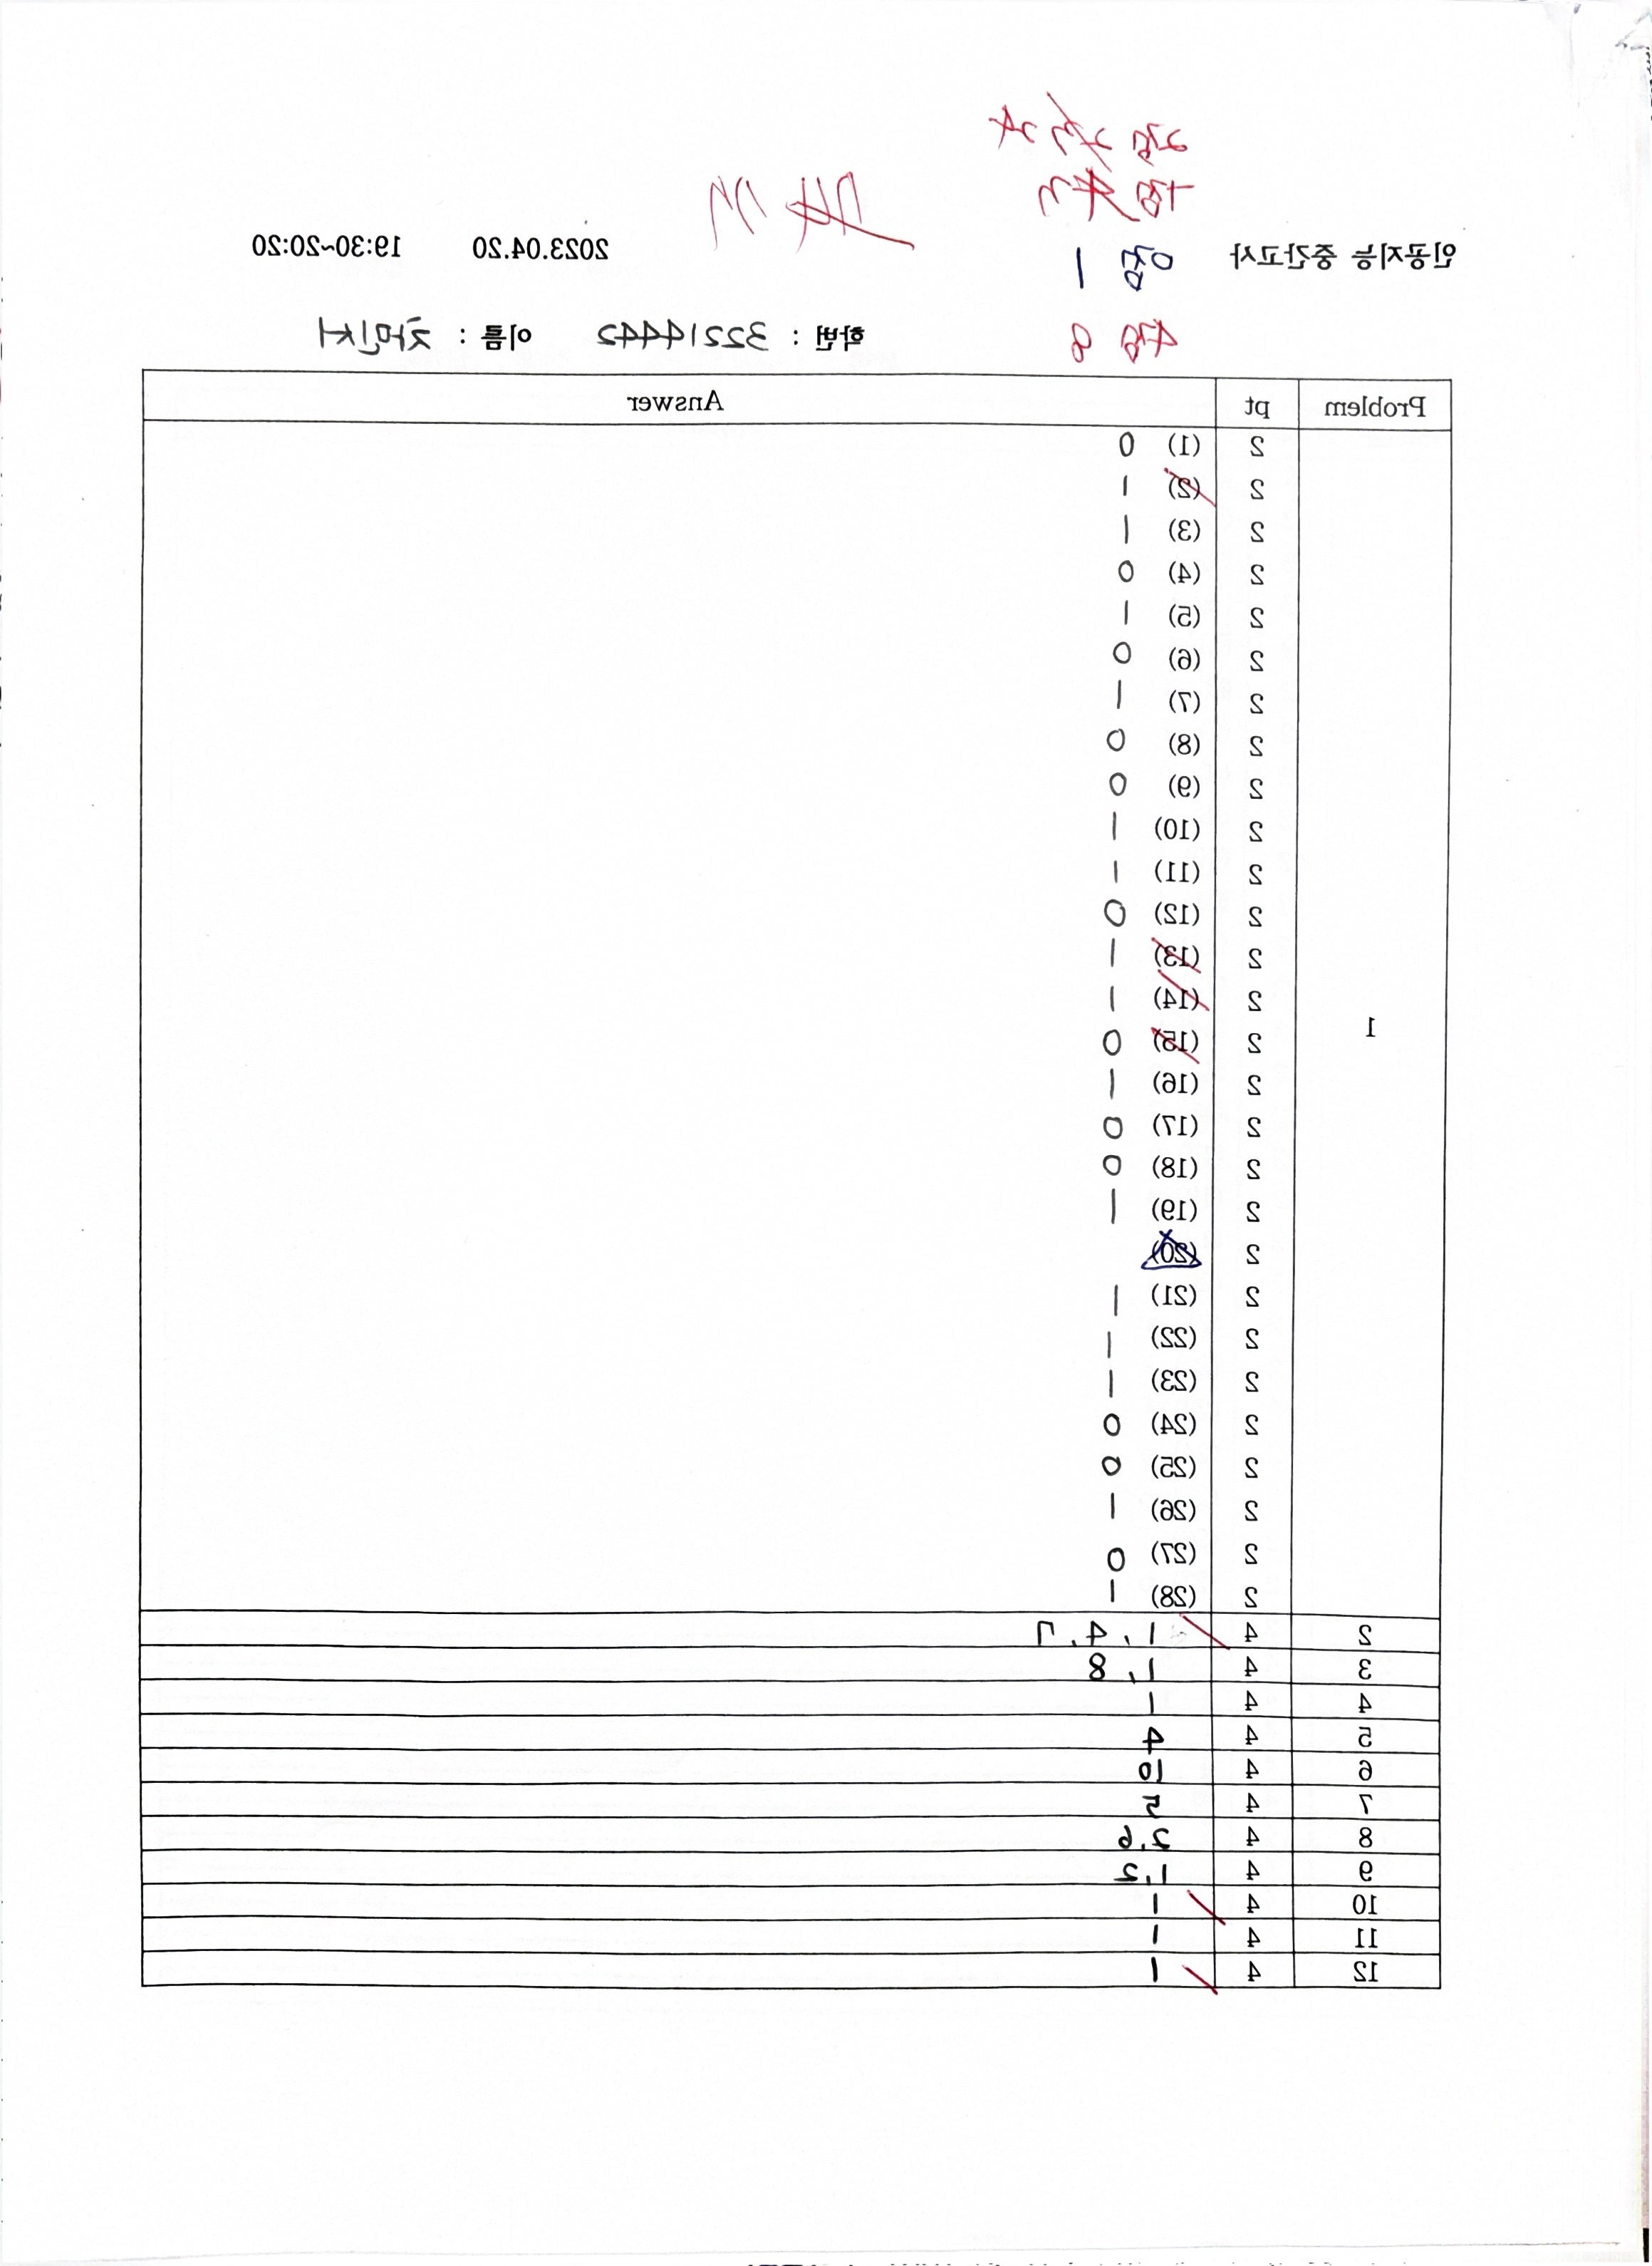 2점
4점
인공지능 중간고사 0점 1 2023.04.20 19:30~20:20
4점 8 학번 : 32214442 이름 : 차민서
Problem pt Answer
1
2 (1) 0
2 (2) 1
2 (3) 1
2 (4) 0
2 (5) 1
2 (6) 0
2 (7) 1
2 (8) 0
2 (9) 0
2 (10) 1
2 (11) 1
2 (12) 0
2 (13) 1
2 (14) 1
2 (15) 0
2 (16) 1
2 (17) 0
2 (18) 0
2 (19) 1
2 (20)
2 (21) 1
2 (22) 1
2 (23) 1
2 (24) 0
2 (25) 0
2 (26) 1
2 (27) 0
2 (28) 1
2 4 1, 4, 7
3 4 1, 8
4 4 1
5 4 4
6 4 10
7 4 5
8 4 2,6
9 4 1,2
10 4 1
11 4 1
12 4 1